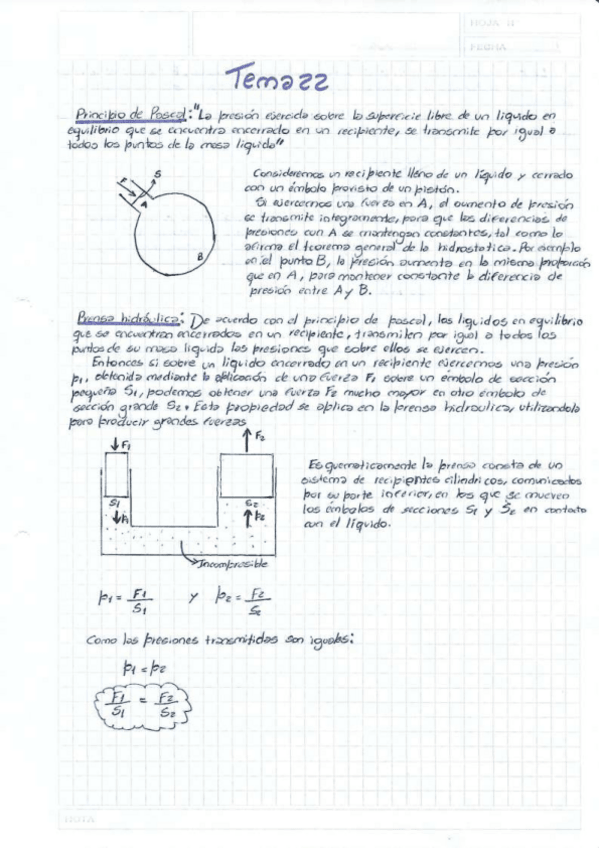 HOJA Nº
FECHA
Tema 22
Principio de Pascal: "La presión ejercida sobre la superficie libre de un líquido en
equilibrio que se encuentra encerrado en un recipiente, se transmite por igual a
todos los puntos de la masa líquida"
Consideremos un recipiente lleno de un líquido y cerrado
con un émbolo provisto de un pistón.
Si ejercemos una fuerza en A, el aumento de presión
se transmite integramente, para que las diferencias de
presiones con A se mantengan constantes, tal como lo
afirma el teorema general de la hidrostatica. Por ejemplo
en el punto B, la presión aumenta en la misma proporción
que en A, para mantener constante la diferencia de
presión entre A y B.
F
S
A
B
Prensa hidráulica: De acuerdo con el principio de pascal, los liquidos en equilibrio
que se encuentran encerrados en un recipiente, transmiten por igual a todos los
puntos de su masa liquida las presiones que sobre ellos se ejercen.
Entonces si sobre un líquido encerrado en un recipiente ejercemos una presión
p1, obtenida mediante la aplicación de una fuerza F1 sobre un émbolo de sección
pequeña S1, podemos obtener una fuerza F2 mucho mayor en otro émbolo de
sección grande S2. Esta propiedad se aplica en la prensa hidraulica, utilizandola
para producir grandes fuerzas
F1
F2
S1
S2
p1
p2
Incompresible
Esquematicamente la prensa consta de un
sistema de recipientes cilindricos, comunicados
por su parte inferior, en los que se mueven
los émbolos de secciones S1 y S2 en contacto
con el líquido.
p1 = F1/S1 y p2 = F2/S2
Como las presiones transmitidas son iguales:
p1 = p2
F1/S1 = F2/S2
NOTA